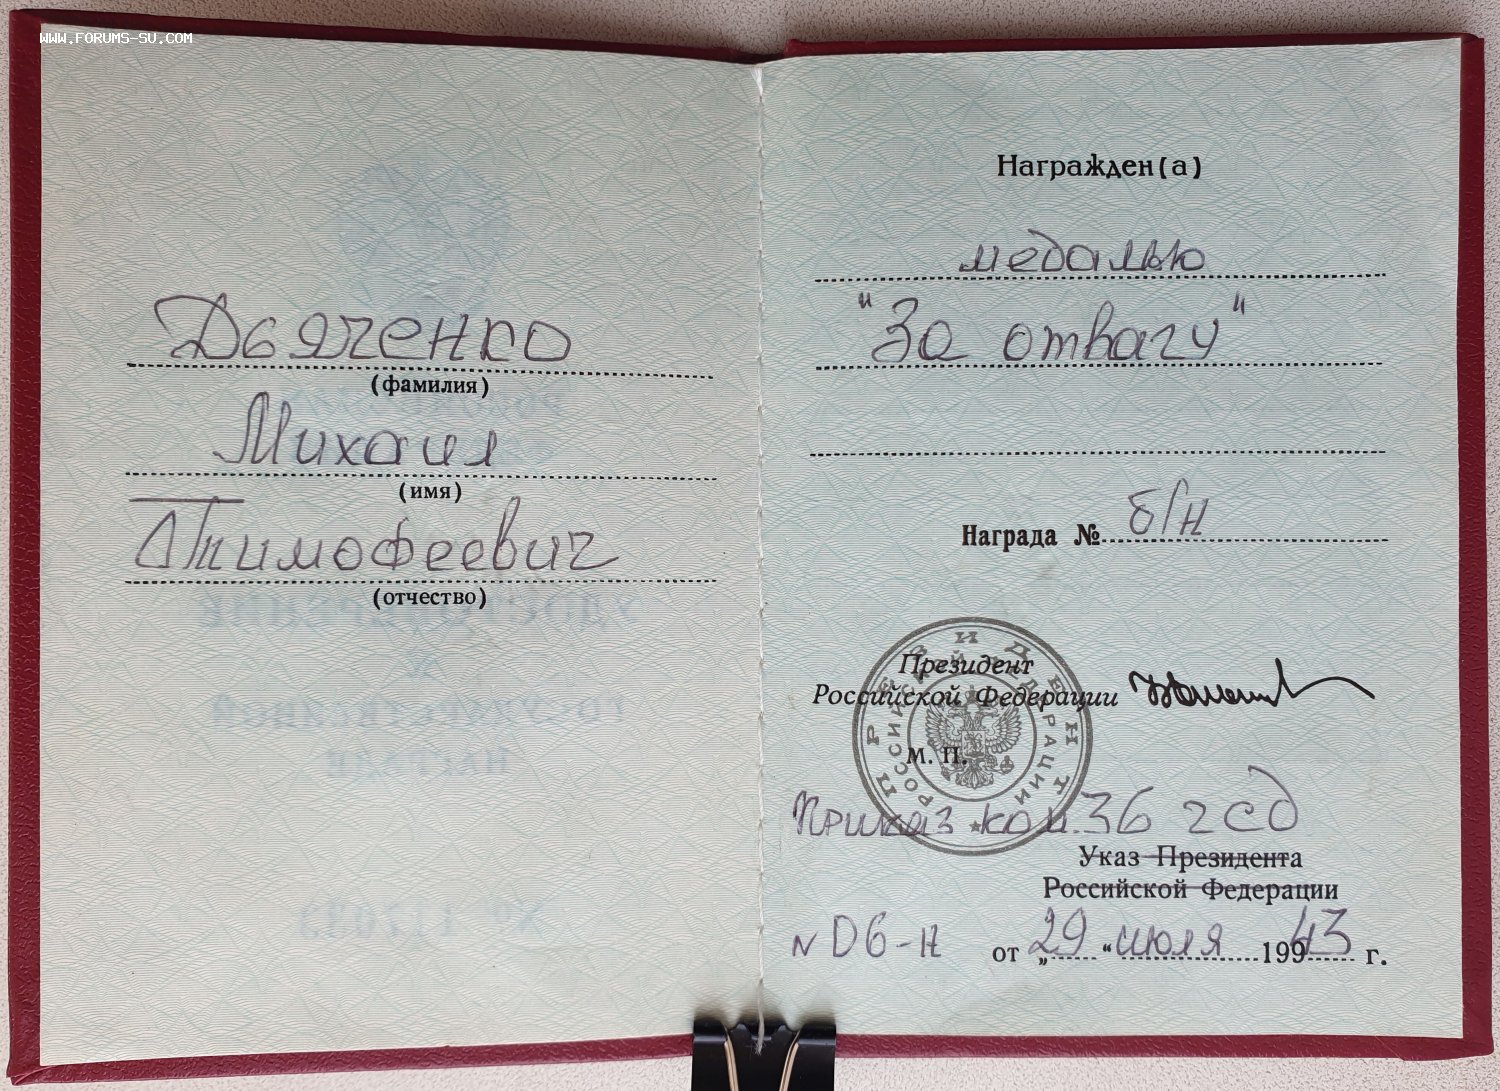 WWW.FORUMS-SU.COM
Дьяченко
(фамилия)
Михаил
(имя)
Тимофеевич
(отчество)
Награжден(а)
медалью
"За отвагу"
Награда № б/н
Президент
Российской Федерации
М. П.
ПРЕЗИДЕНТ
РОССИЙСКОЙ ФЕДЕРАЦИИ
Приказ ком. 36 гсд
Указ Президента
Российской Федерации
N 06-н от „29 “ июля 19943 г.